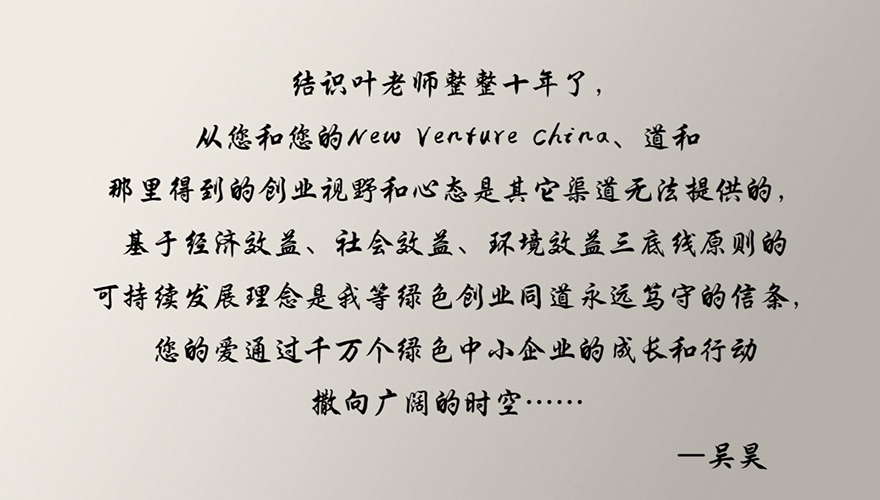 结识叶老师整整十年了，
从您和您的New Venture China、道和
那里得到的创业视野和心态是其它渠道无法提供的，
基于经济效益、社会效益、环境效益三底线原则的
可持续发展理念是我等绿色创业同道永远笃守的信条，
您的爱通过千万个绿色中小企业的成长和行动
撒向广阔的时空……
—吴昊